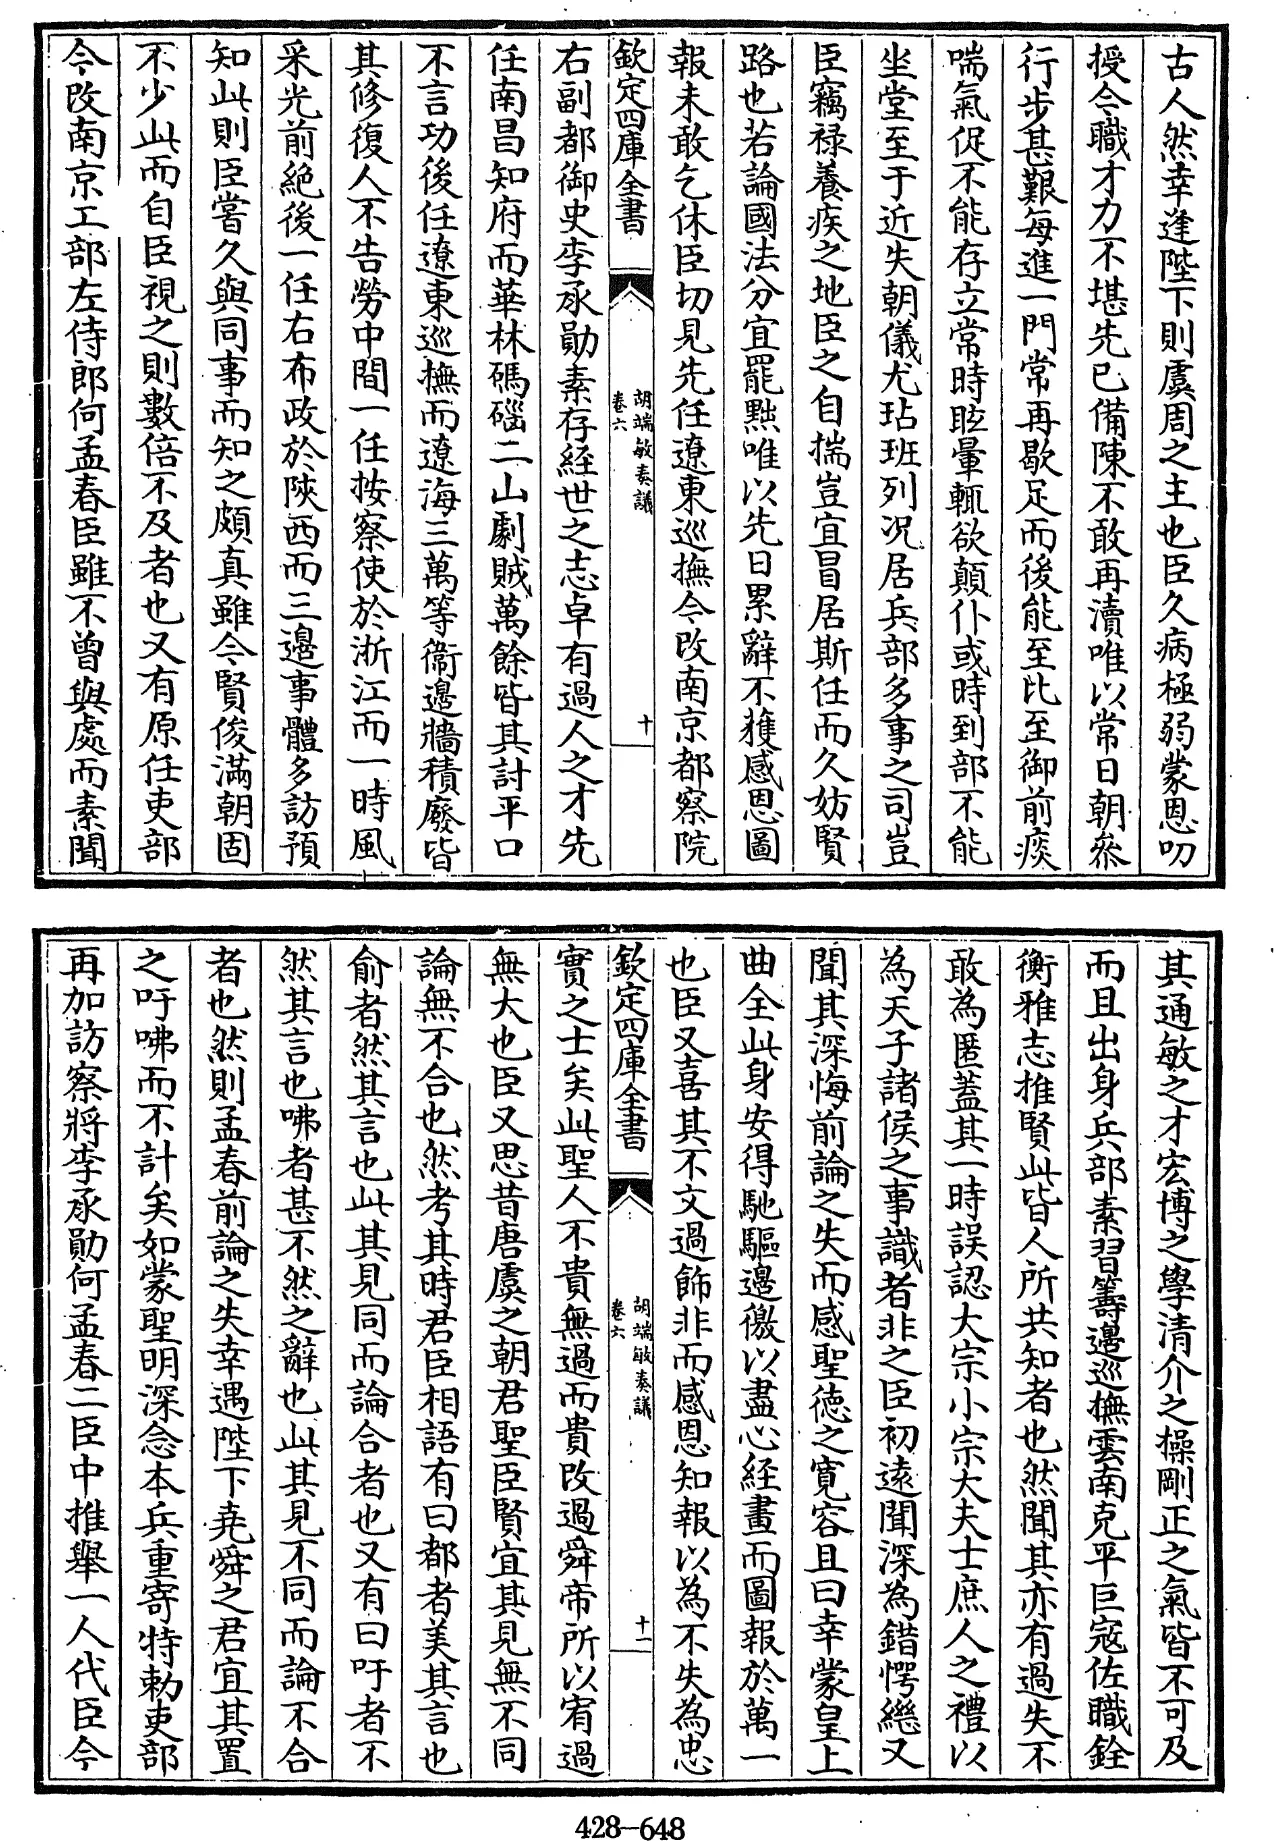 古人然幸逢陛下則虞周之主也臣久病極弱蒙恩叨
授今職才力不堪先已備陳不敢再瀆唯以常日朝叅
行步甚艱每進一門常再歇足而後能至比至御前痰
喘氣促不能存立常時眩暈輒欲顛仆或時到部不能
坐堂至于近失朝儀尤玷班列况居兵部多事之司豈
臣竊祿養疾之地臣之自揣豈宜冒居斯任而久妨賢
路也若論國法分宜罷黜唯以先日累辭不獲感恩圖
報未敢乞休臣切見先任遼東巡撫今改南京都察院
欽定四庫全書
胡端敏奏議
卷六
十
右副都御史李承勛素存經世之志卓有過人之才先
任南昌知府而華林碼碯二山劇賊萬餘皆其討平口
不言功後任遼東巡撫而遼海三萬等衞邊牆積廢皆
其修復人不告勞中間一任按察使於浙江而一時風
采光前絶後一任右布政於陜西而三邊事體多訪預
知此則臣嘗久與同事而知之頗真雖今賢俊滿朝固
不少此而自臣視之則數倍不及者也又有原任吏部
今改南京工部左侍郎何孟春臣雖不曾與處而素聞
其通敏之才宏博之學清介之操剛正之氣皆不可及
而且出身兵部素習籌邊巡撫雲南克平巨寇佐職銓
衡雅志推賢此皆人所共知者也然聞其亦有過失不
敢為匿葢其一時誤認大宗小宗大夫士庶人之禮以
為天子諸侯之事識者非之臣初遠聞深為錯愕繼又
聞其深悔前論之失而感聖德之寛容且曰幸蒙皇上
曲全此身安得馳驅邊徼以盡心經畫而圖報於萬一
也臣又喜其不文過飾非而感恩知報以為不失為忠
欽定四庫全書
胡端敏奏議
卷六
十一
實之士矣此聖人不貴無過而貴改過舜帝所以宥過
無大也臣又思昔唐虞之朝君聖臣賢宜其見無不同
論無不合也然考其時君臣相語有曰都者美其言也
俞者然其言也此其見同而論合者也又有曰吁者不
然其言也咈者甚不然之辭也此其見不同而論不合
者也然則孟春前論之失幸遇陛下堯舜之君宜其置
之吁咈而不計矣如蒙聖明深念本兵重寄特勅吏部
再加訪察將李承勛何孟春二臣中推舉一人代臣今
428-648